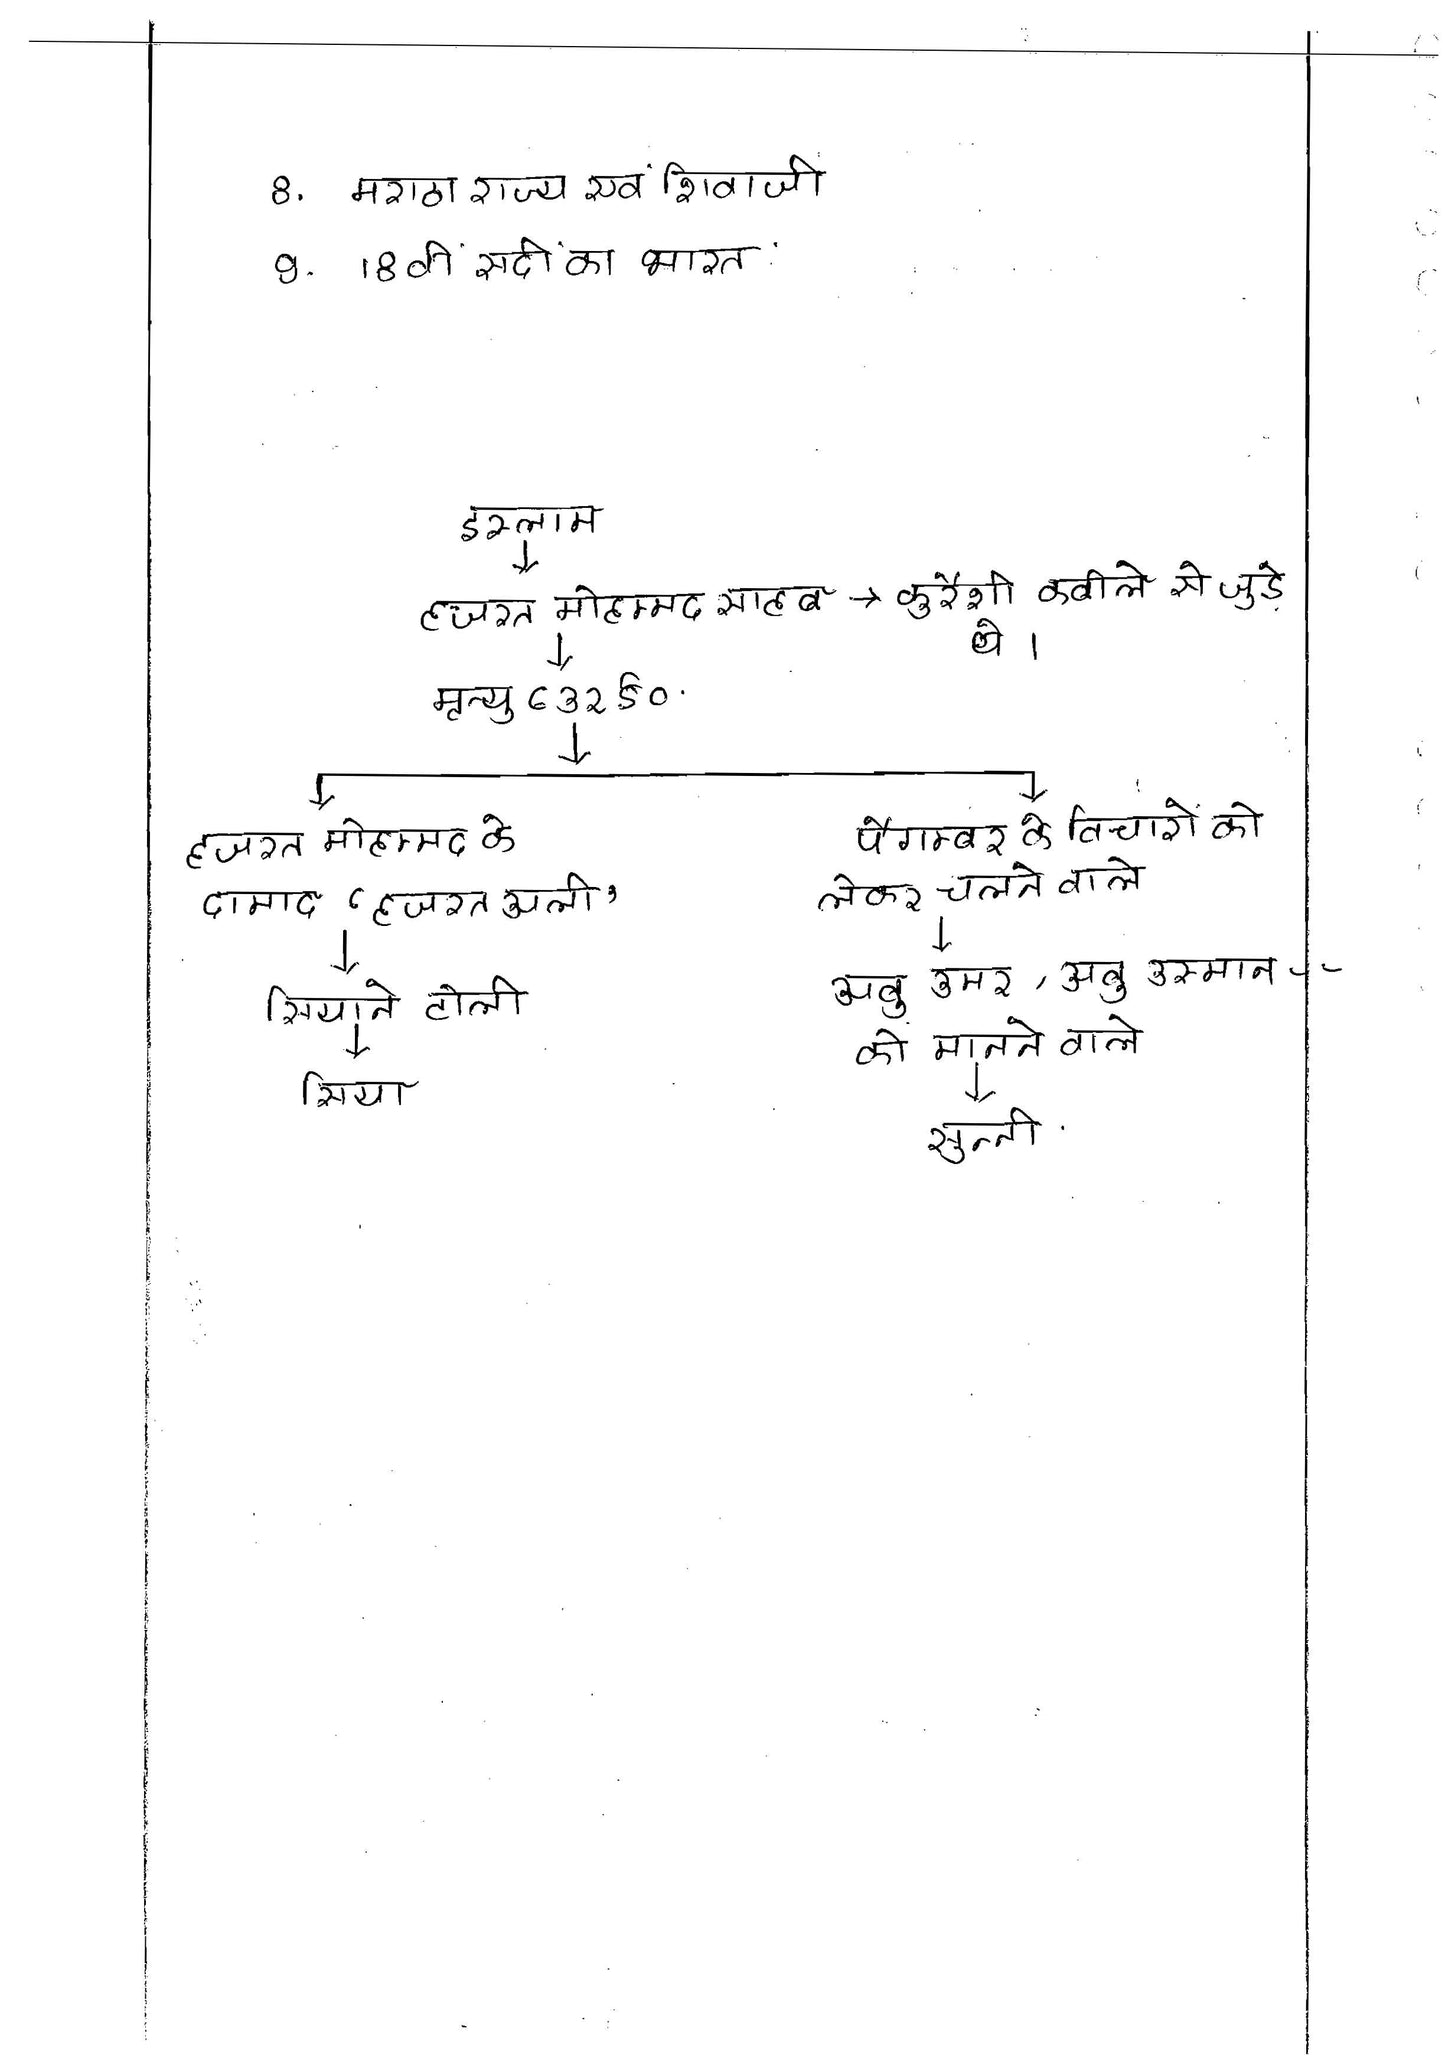 8. मराठा राज्य एवं शिवाजी
9. 18वीं सदीं का भारत
इस्लाम
↓
हजरत मोहम्मद साहब → कुरैशी कबीले से जुड़े
थे ।
↓
मृत्यु 632 ई०
↓
हजरत मोहम्मद के
दामाद ‘हजरत अली’
↓
सियाने टोली
↓
सिया
पैगम्बर के विचारों को
लेकर चलने वाले
↓
अबु उमर, अबु उस्मान --
को मानने वाले
↓
सुन्नी